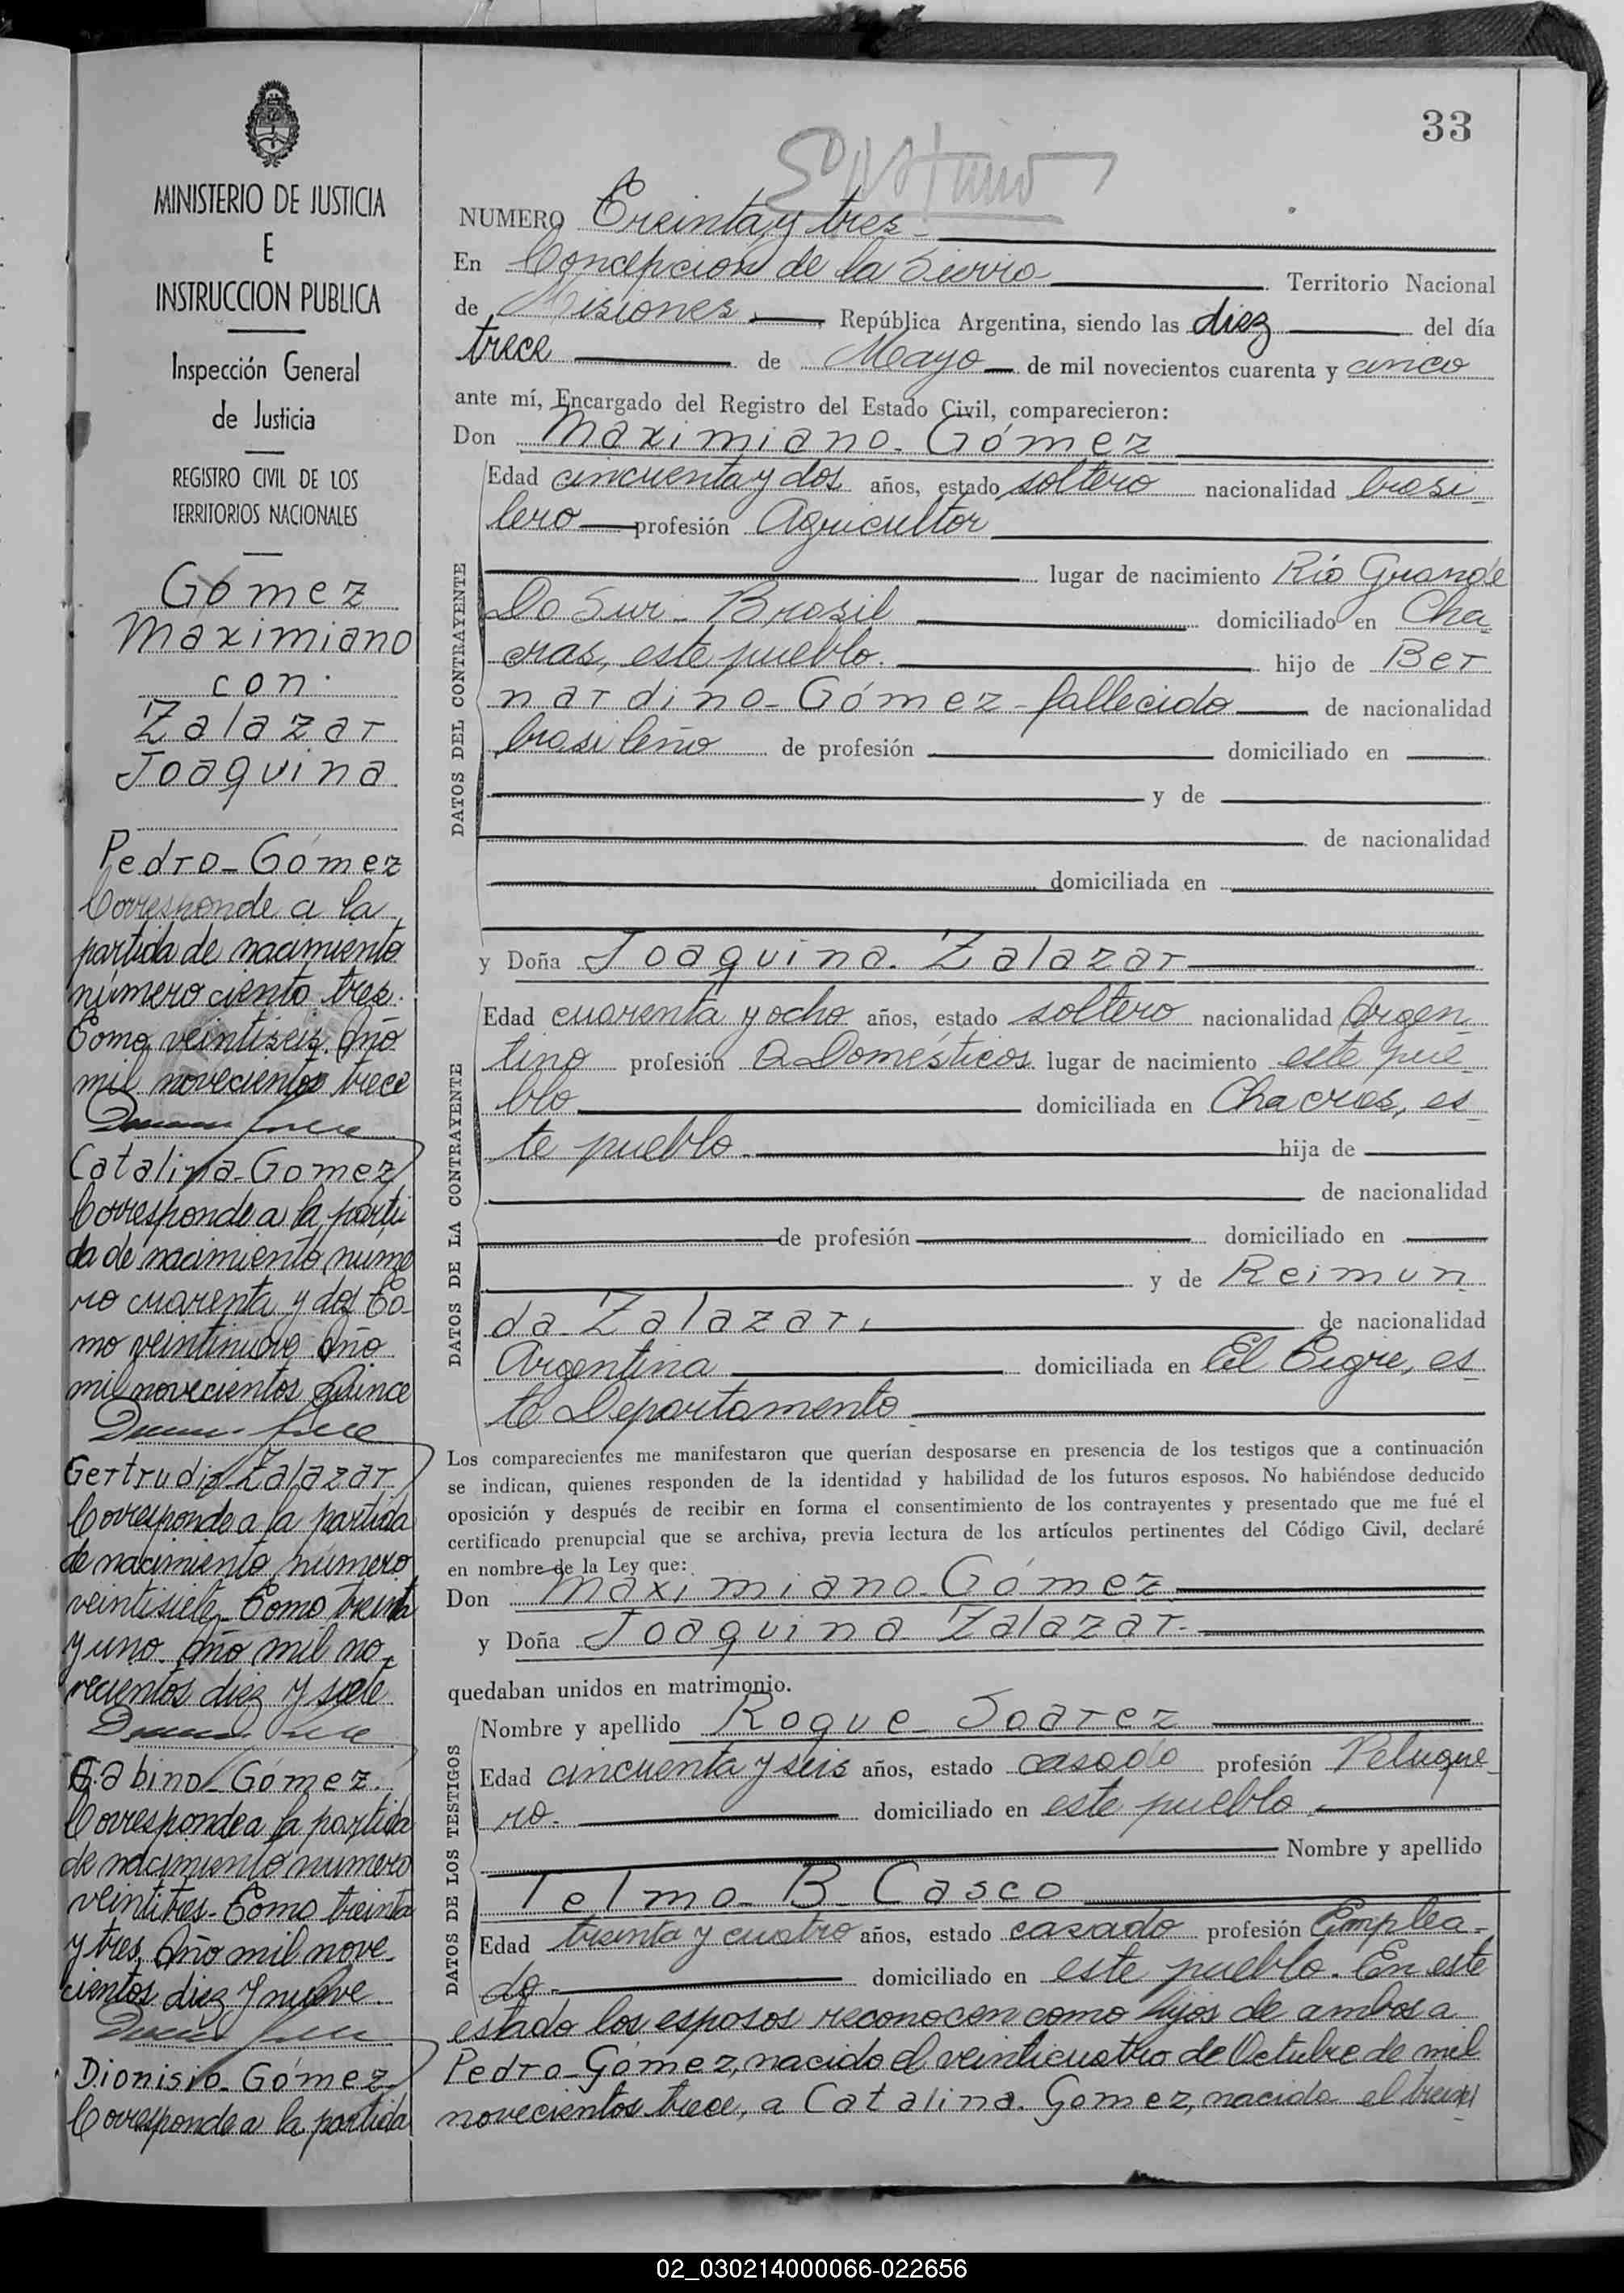 MINISTERIO DE JUSTICIA
E
INSTRUCCION PUBLICA
Inspección General
de Justicia
REGISTRO CIVIL DE LOS
TERRITORIOS NACIONALES
Gómez
Maximiano
con
Zalazar
Joaquina
Pedro-Gómez
Corresponde a la
partida de nacimiento
número ciento tres.
Tomo veintiseis. Año
mil novecientos trece
Catalina-Gomez
Corresponde a la parti
da de nacimiento, nume
ro cuarenta y dos To-
mo veintinueve Año
mil novecientos Quince
Gertrudiz Zalazar
Corresponde a la partida
de nacimiento, número
veintisiete- Tomo treinta
y uno. Año mil no-
vecientos diez y siete
Gabino-Gómez.
Corresponde a la partida
de nacimiento numero
veintitres- Tomo treinta
y tres. Año mil nove-
cientos diez y nueve
Dionisio-Gómez
Corresponde a la partida
33
NUMERO Treinta y tres-
En Concepcion de la Sierra Territorio Nacional
de Misiones República Argentina, siendo las diez del día
trece de Mayo de mil novecientos cuarenta y cinco
ante mí, Encargado del Registro del Estado Civil, comparecieron:
Don Maximiano-Gómez
DATOS DEL CONTRAYENTE
Edad cincuenta y dos años, estado soltero nacionalidad brasi-
lero profesión Agricultor
lugar de nacimiento Río Grande
Do Sur- Brasil domiciliado en Cha-
cras, este pueblo. hijo de Ber
nardino-Gómez-fallecido de nacionalidad
brasileño de profesión domiciliado en
y de
de nacionalidad
domiciliada en
y Doña Joaquina-Zalazar
DATOS DE LA CONTRAYENTE
Edad cuarenta y ocho años, estado soltero nacionalidad Argen
tina profesión Q Domésticos lugar de nacimiento este pue-
blo domiciliada en Chacras, es
te pueblo. hija de
de nacionalidad
de profesión domiciliado en
y de Reimun
da-Zalazar, de nacionalidad
Argentina domiciliada en El Tigre, es
te Departamento
Los comparecientes me manifestaron que querían desposarse en presencia de los testigos que a continuación
se indican, quienes responden de la identidad y habilidad de los futuros esposos. No habiéndose deducido
oposición y después de recibir en forma el consentimiento de los contrayentes y presentado que me fué el
certificado prenupcial que se archiva, previa lectura de los artículos pertinentes del Código Civil, declaré
en nombre de la Ley que:
Don Maximiano-Gómez
y Doña Joaquina Zalazar-
quedaban unidos en matrimonio.
DATOS DE LOS TESTIGOS
Nombre y apellido Roque-Soarez
Edad cincuenta y seis años, estado casado profesión Peluque-
ro. domiciliado en este pueblo.
Nombre y apellido
Telmo-B-Casco
Edad treinta y cuatro años, estado casado profesión Emplea-
do- domiciliado en este pueblo. En este
estado los esposos reconocen como hijos de ambos a
Pedro-Gómez, nacido el veinticuatro de Octubre de mil
novecientos trece, a Catalina-Gomez, nacida el trein
02_030214000066-022656